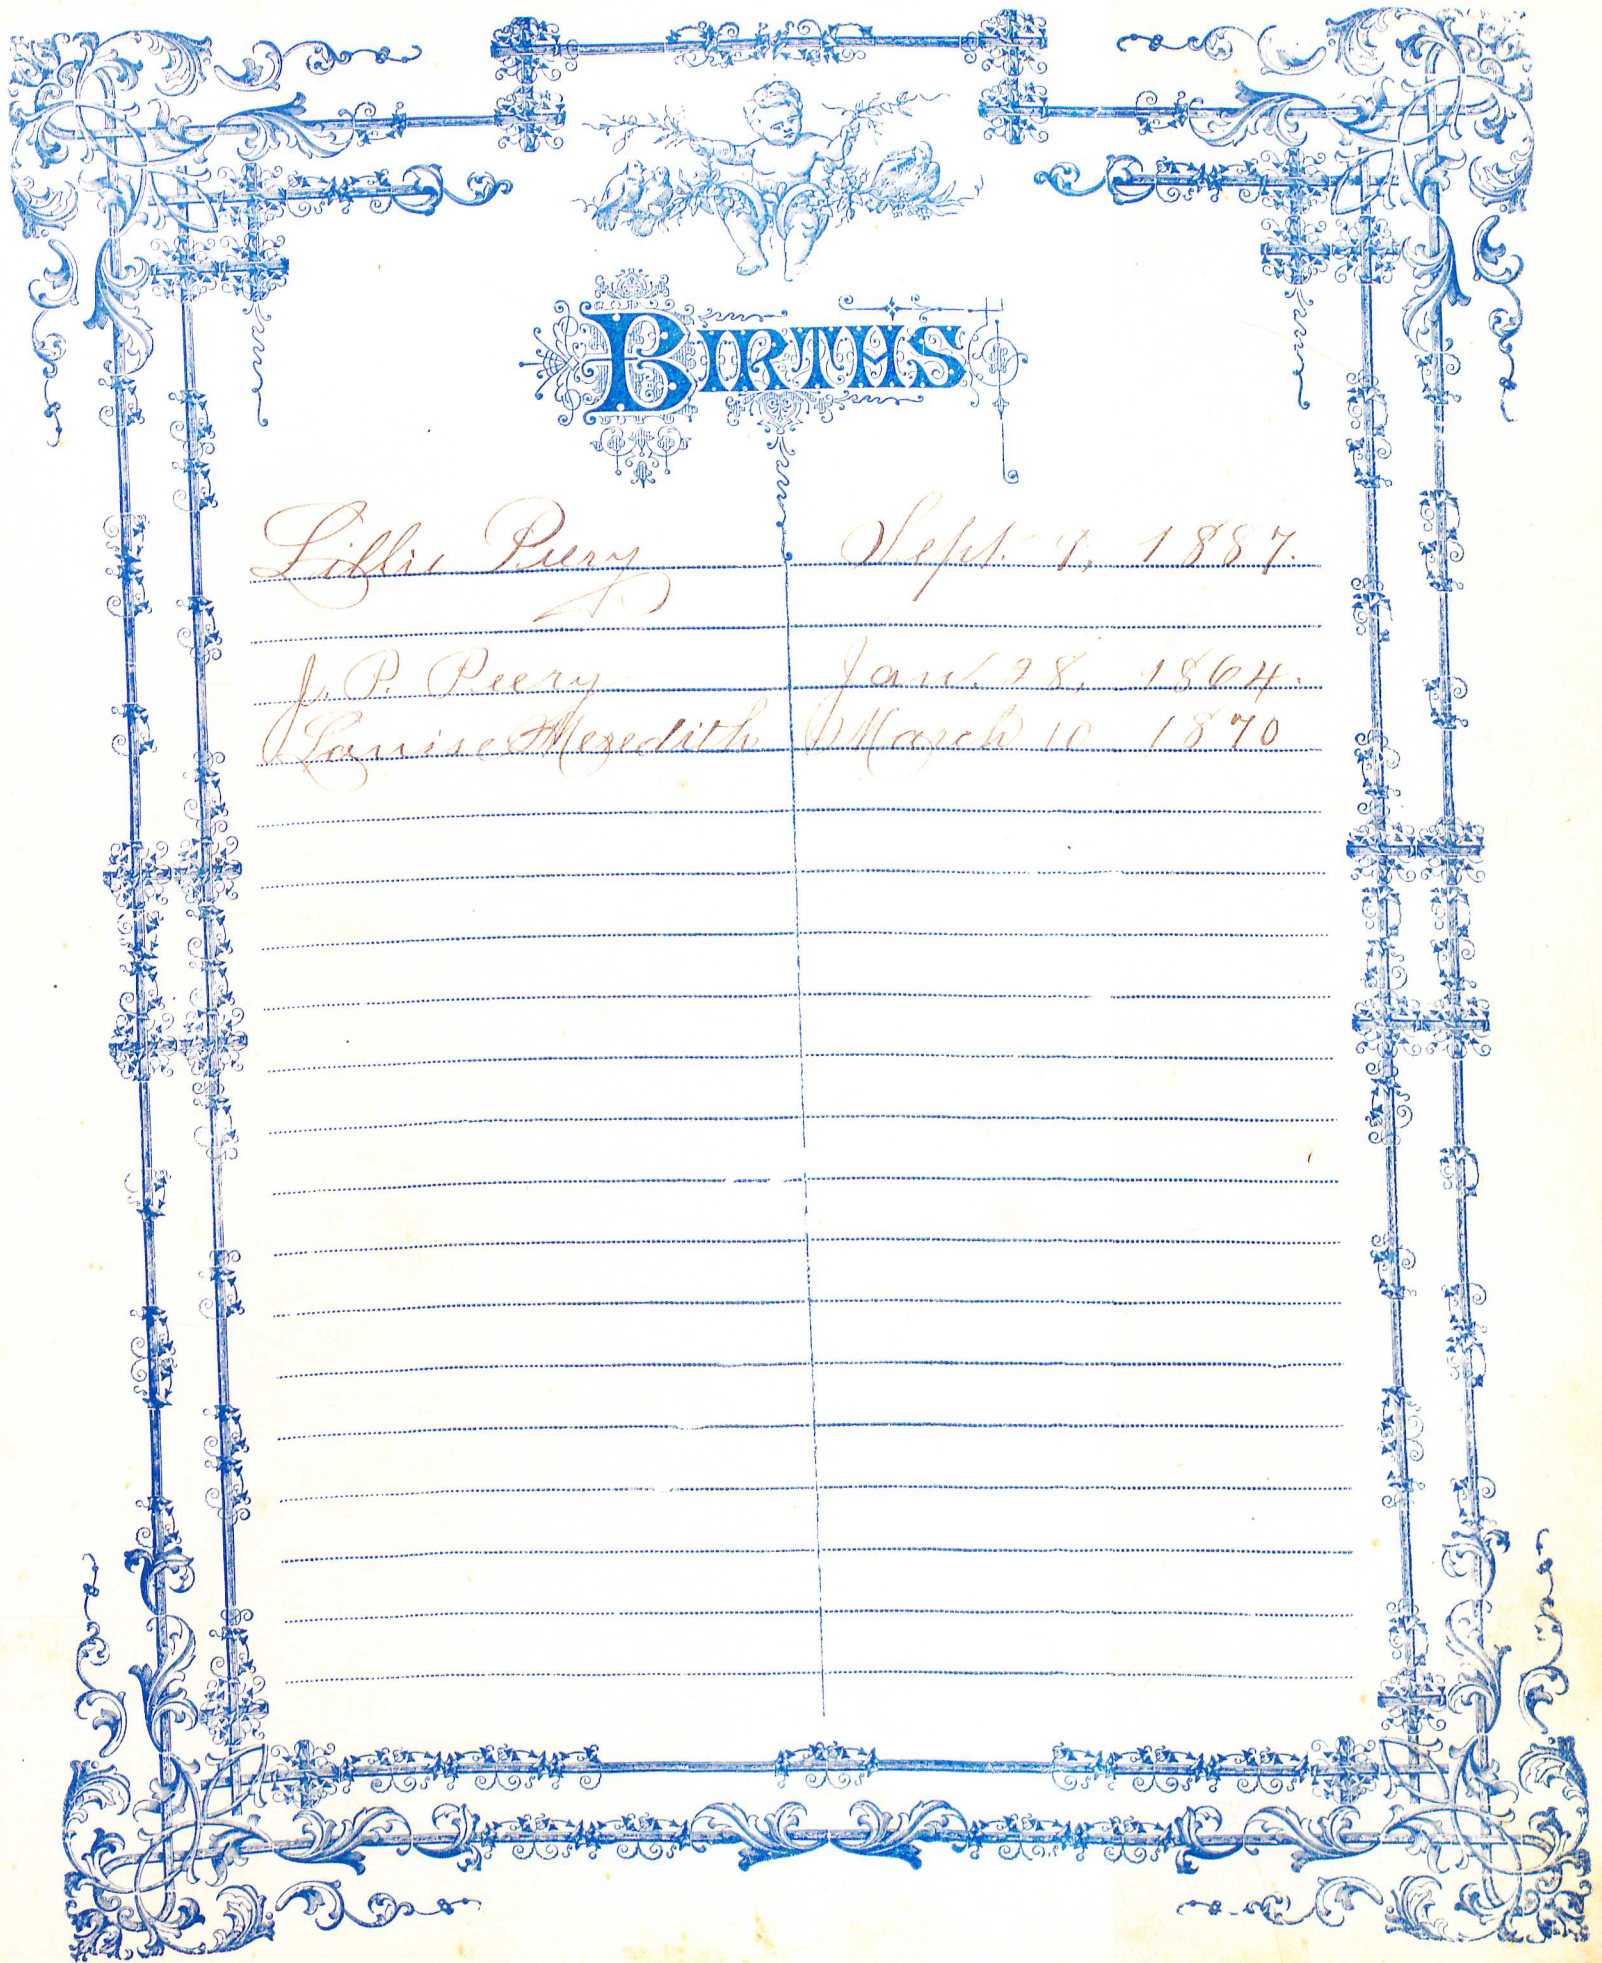 BIRTHS
Lillie Peery Sept. 7, 1887.
J. P. Peery Jan. 28, 1864.
Louise Meredith March 10 1870